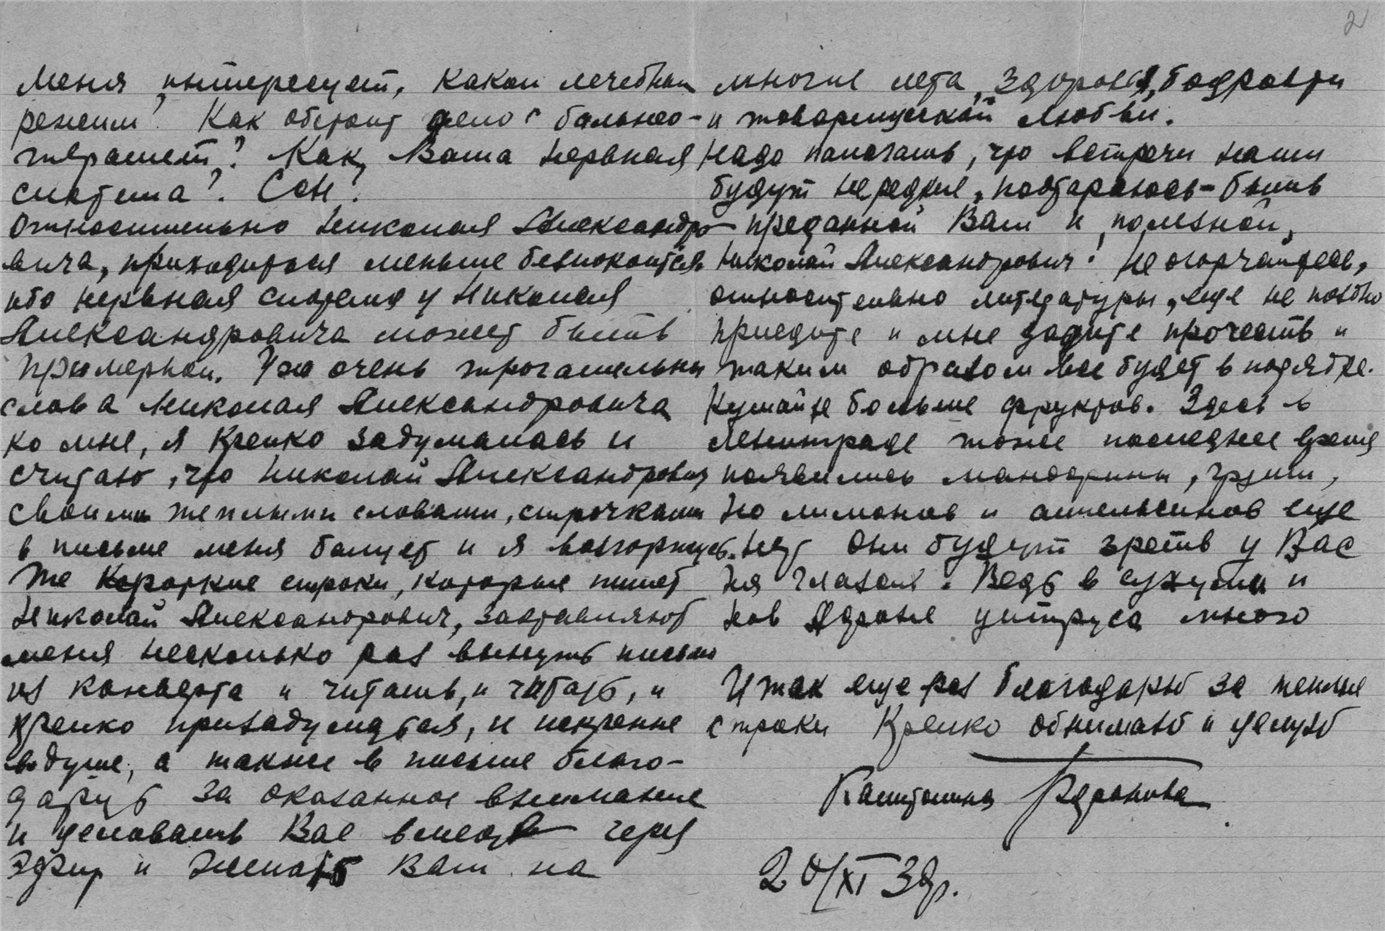 2
Меня интересует, каков лечебный
режим? Как обстоит дело с бальнео-
терапией? Как Ваша нервная
система? Сон?
Относительно Николая Александро-
вича, приходится меньше беспокоиться
ибо нервная система у Николая
Александровича может быть
примерной. Уж очень трогательны
слова Николая Александровича
ко мне, я крепко задумалась и
считаю, что Николай Александрович
своими теплыми словами, строчками
в письме меня балует и я восторгаюсь.
Те короткие строки, которые пишет
Николай Александрович, заставляют
меня несколько раз вынуть письмо
из конверта и читать, и читать, и
крепко призадуматься, и искренне
в душе, а также в письме благо-
дарить за оказанное внимание
и целовать Вас вместе через
эфир и желать Вам на
многие лета, здоровья, бодрости
и товарищеской любви.
Надо полагать, что встречи наши
будут нередкие, постараюсь - быть
преданной Вам и полезной,
Николай Александрович! Не огорчайтесь,
относительно литературы, еще не поздно
приедите и мне дадите прочесть и
таким образом все будет в порядке.
Кушайте больше фруктов. Здесь в
Ленинграде тоже последнее время
появились мандарины, груши,
но лимонов и апельсинов еще
нет они будут зреть у Вас
на глазах. Ведь в Сухуми и
Нов Афоне цитруса много
Итак еще раз благодарю за теплые
строки Крепко обнимаю и целую
Капитолина
20/XI 39г.